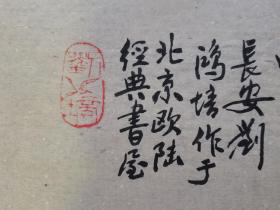 長安劉
鴻培作于
北京欧陆
經典書屋